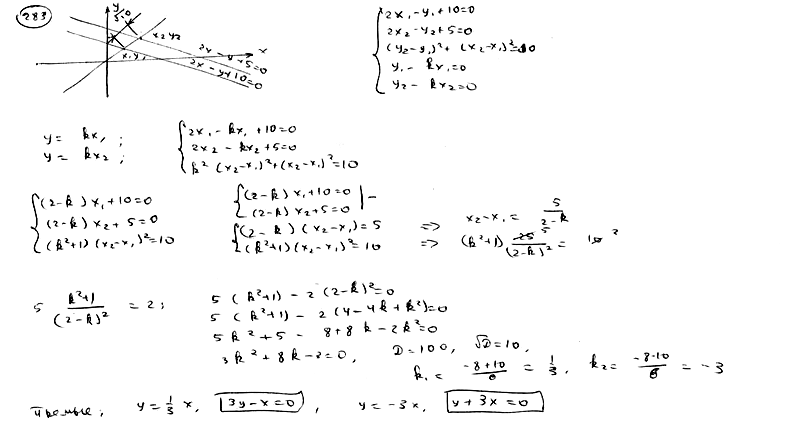 283
y
5√10
x₂y₂
x₁y₁
x
2x - y + 5 = 0
2x - y + 10 = 0
2x₁ - y₁ + 10 = 0
2x₂ - y₂ + 5 = 0
(y₂ - y₁)² + (x₂ - x₁)² = 10
y₁ - kx₁ = 0
y₂ - kx₂ = 0
y = kx₁;
y = kx₂;
2x₁ - kx₁ + 10 = 0
2x₂ - kx₂ + 5 = 0
k²(x₂ - x₁)² + (x₂ - x₁)² = 10
(2 - k)x₁ + 10 = 0
(2 - k)x₂ + 5 = 0
(k² + 1)(x₂ - x₁)² = 10
(2 - k)x₁ + 10 = 0 | -
(2 - k)x₂ + 5 = 0
(2 - k)(x₂ - x₁) = 5 => x₂ - x₁ = 5/(2 - k)
(k² + 1)(x₂ - x₁)² = 10 => (k² + 1) · 25 5/(2 - k)² = 10 2
5 (k² + 1)/(2 - k)² = 2;
5(k² + 1) - 2(2 - k)² = 0
5(k² + 1) - 2(4 - 4k + k²) = 0
5k² + 5 - 8 + 8k - 2k² = 0
3k² + 8k - 3 = 0, D = 100, √D = 10,
k₁ = (-8 + 10)/6 = 1/3, k₂ = (-8 - 10)/6 = -3
Прямые: y = 1/3 x, 3y - x = 0, y = -3x, y + 3x = 0